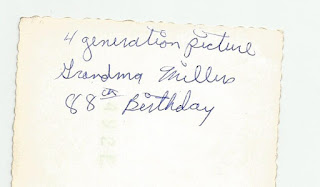 4 generation picture
Grandma Millers
88th Birthday